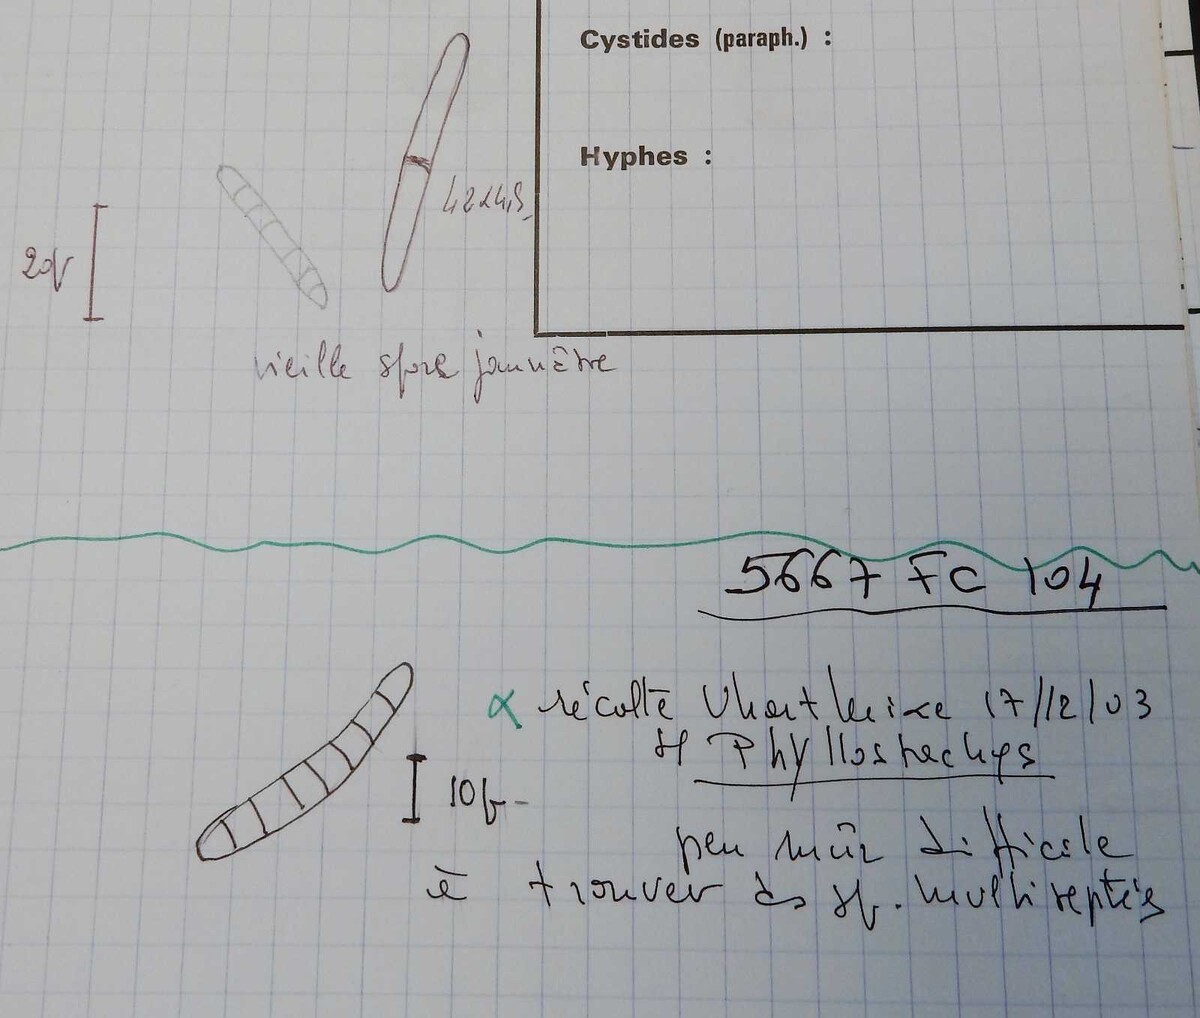 Cystides (paraph.) :
Hyphes :
42x4,5
20µ
vieille spore jaunâtre
5667 FC 104
récolte 17/12/03
Phyllostachys
10µ
peu mûr difficile
à trouver ds sp. multiseptés